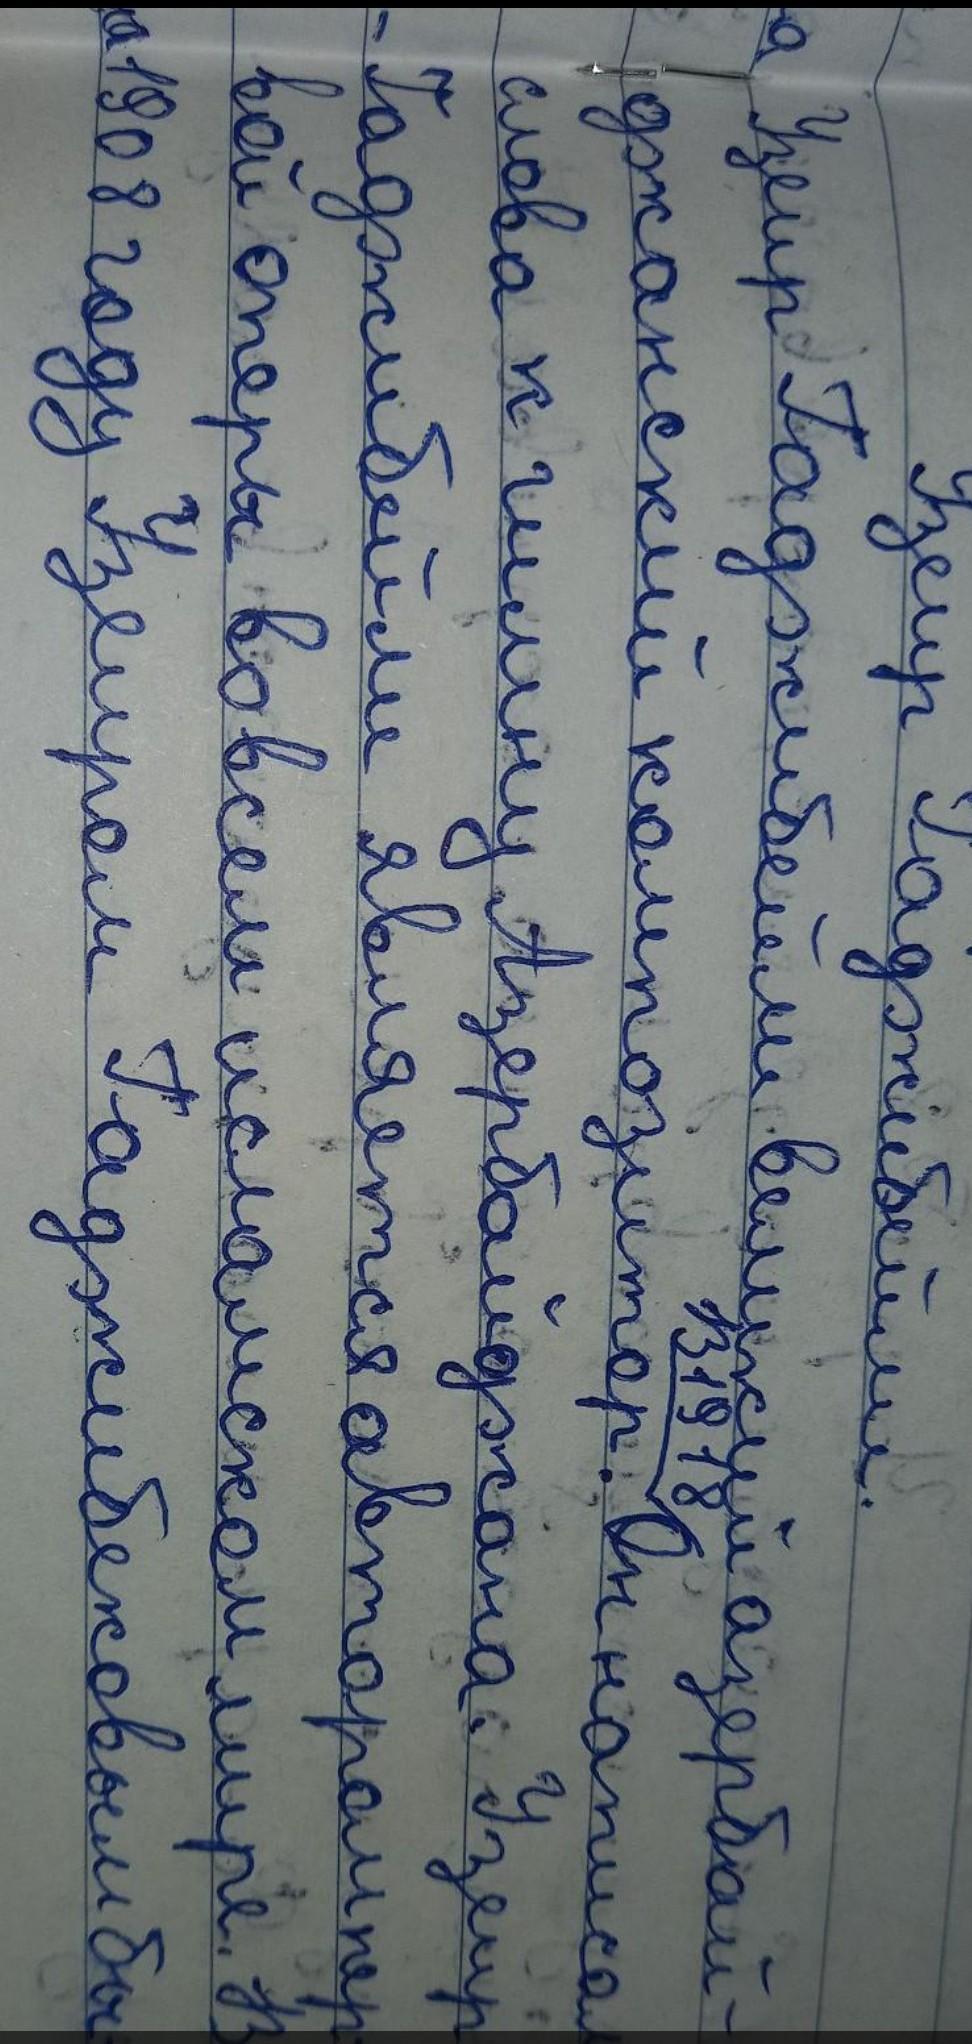 Узеир Гаджибейли.
Узеир Гаджибейли великий азербай-
В 1918
джанский композитор. Он написал
слова к гимну Азербайджана. Узеир
Гаджибейли является автором пер
вой оперы во всем исламском мире. В
1908 году Узеиром Гаджибековым бы